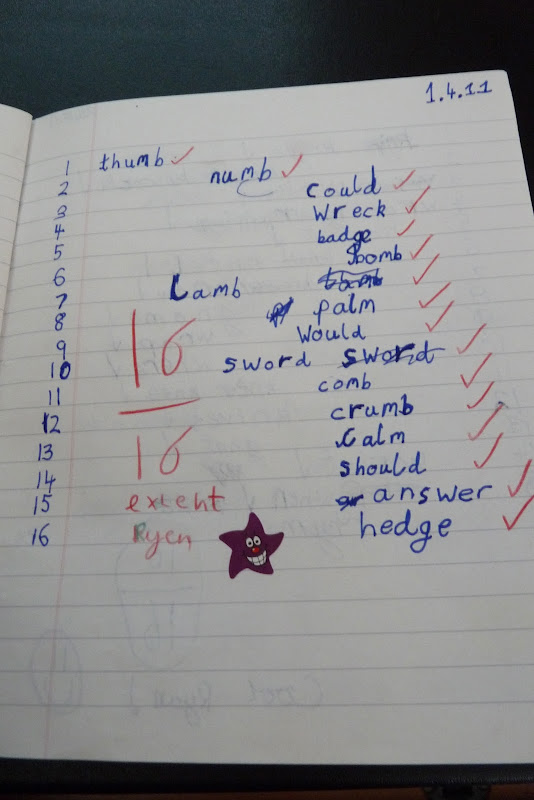 1.4.11
1 thumb
2 numb
3 could
4 wreck
5 badge
6 bomb
7 Lamb
8 palm
9 Would
10 sword sword
11 comb
12 crumb
13 Calm
14 should
15 answer
16 hedge
16
16
extent
Ryen